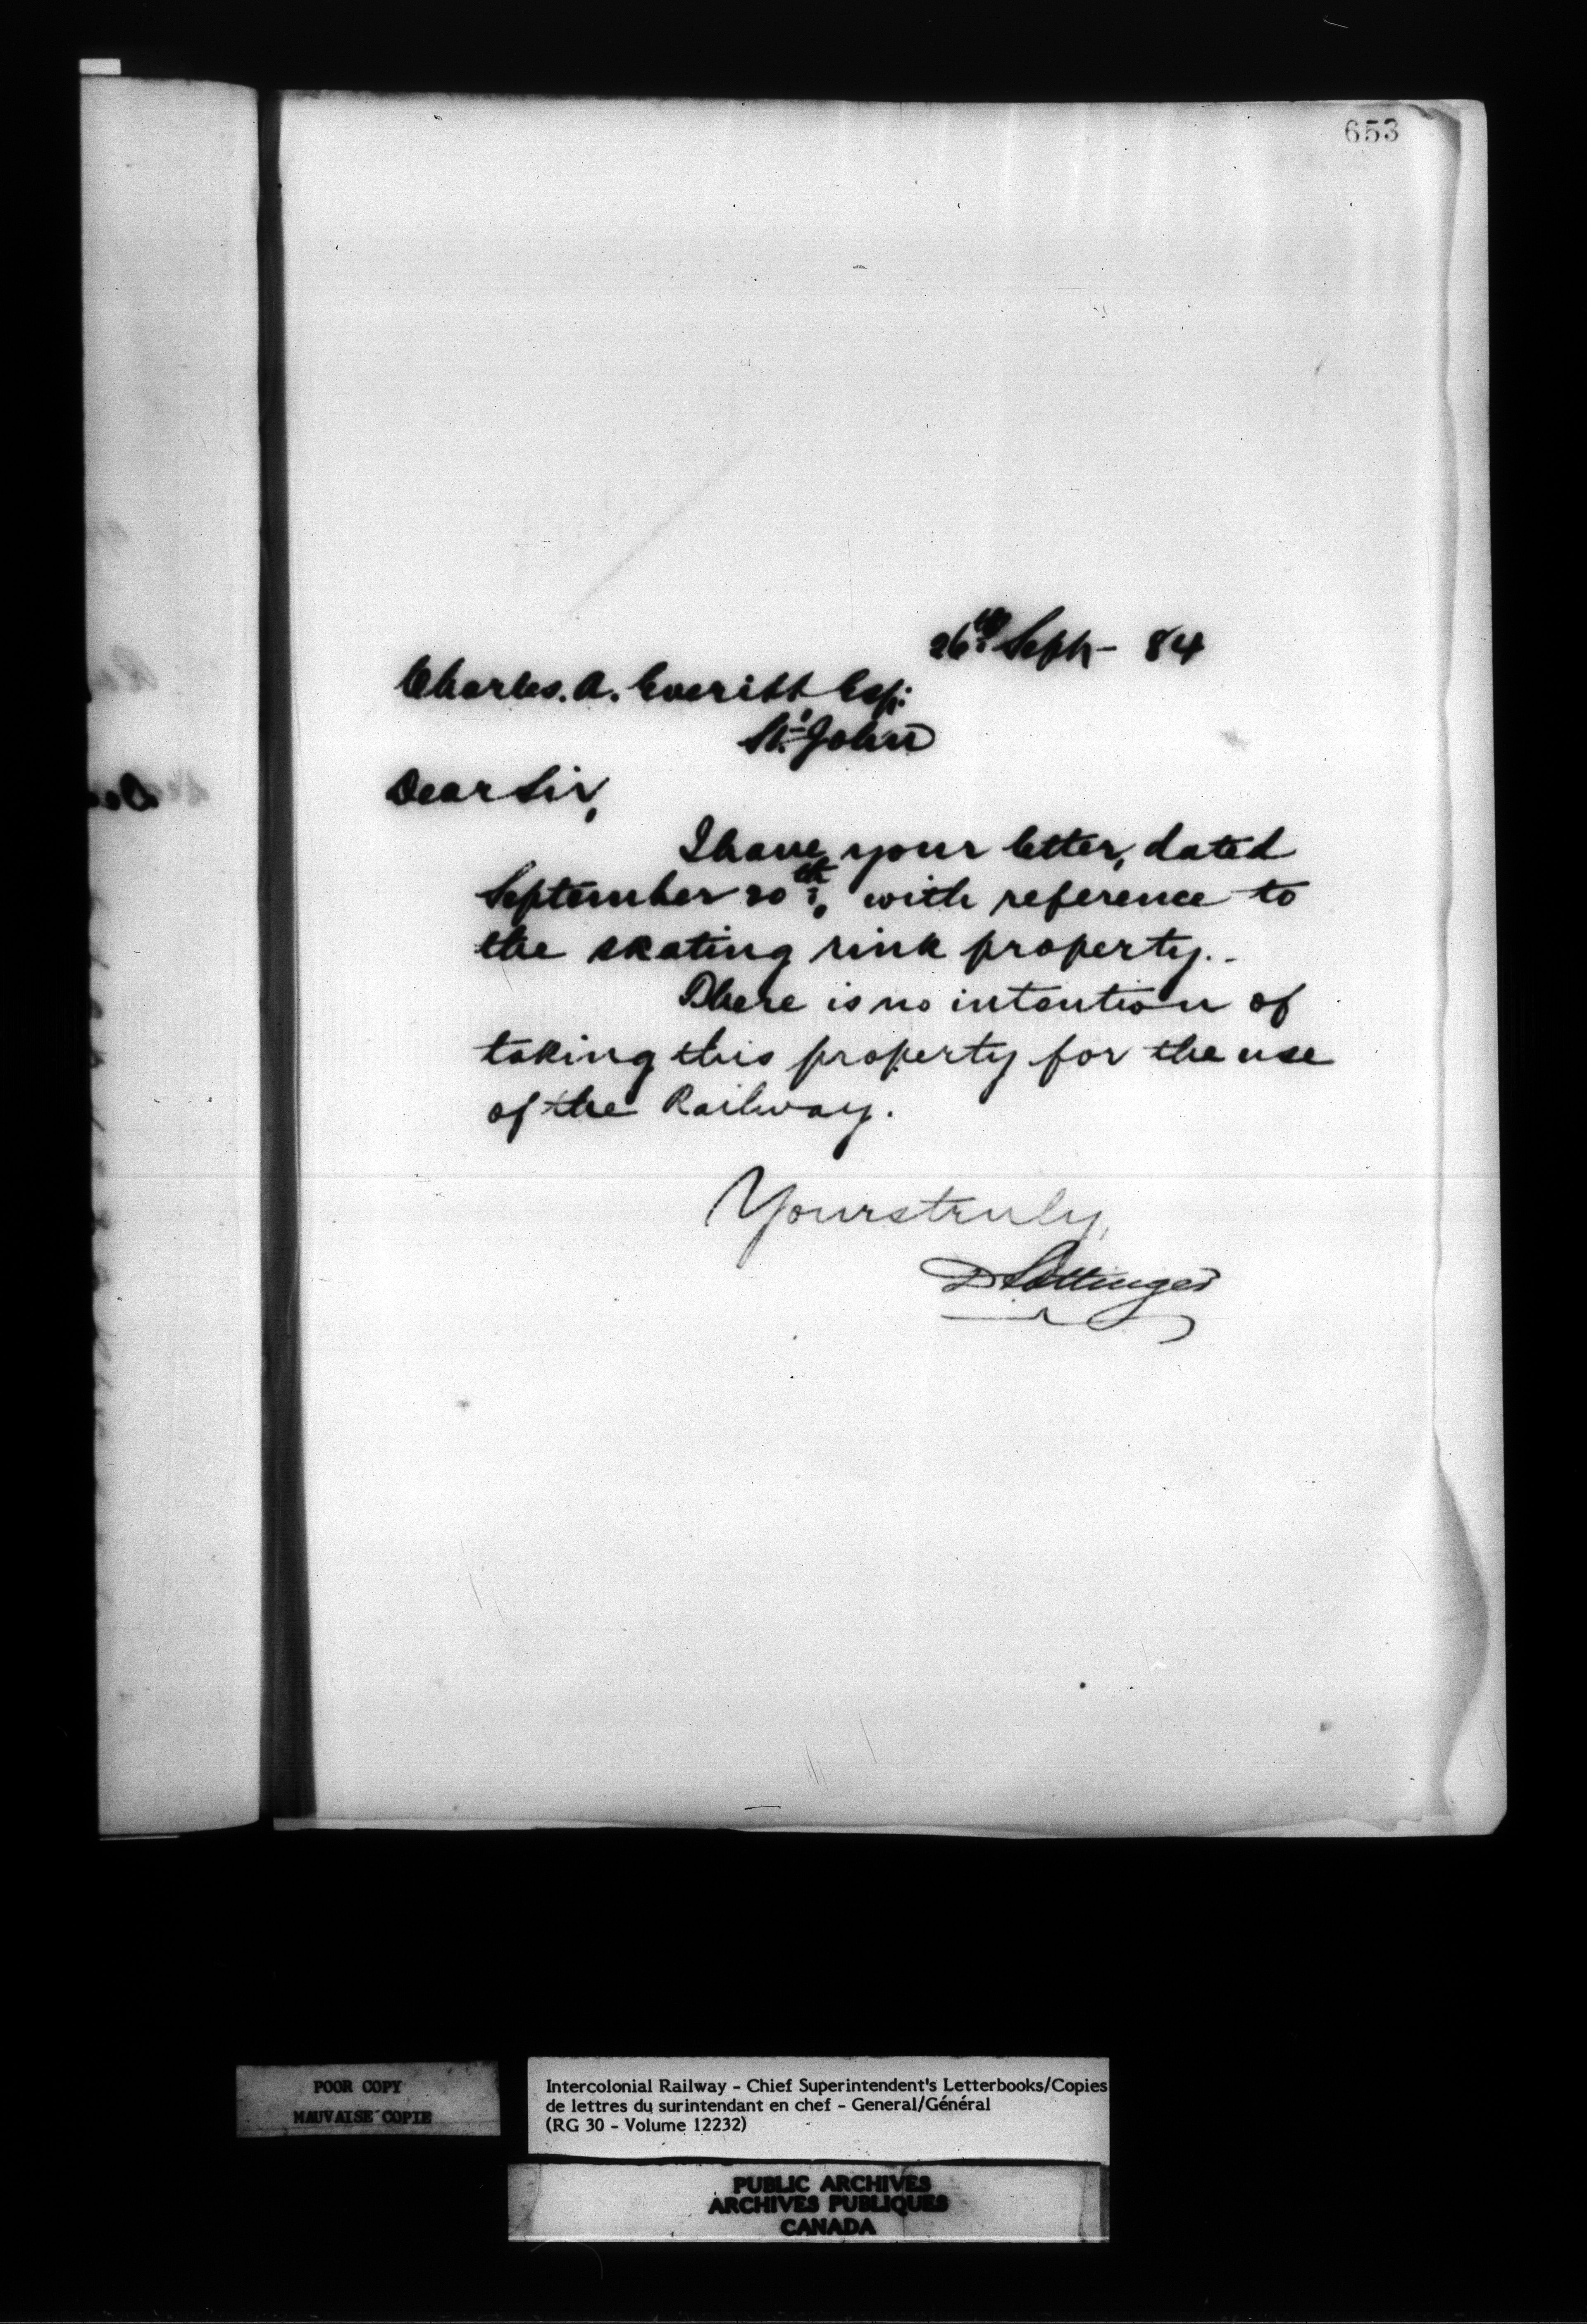 653
26th Sept - 84
Charles. A. Everitt, Esq:
St. John
Dear Sir,
I have your letter, dated
September 20th, with reference to
the skating rink property.-
There is no intention of
taking this property for the use
of the Railway.
Yours truly,
D Pottinger
POOR COPY
MAUVAISE COPIE
Intercolonial Railway - Chief Superintendent's Letterbooks/Copies
de lettres du surintendant en chef - General/Général
(RG 30 - Volume 12232)
PUBLIC ARCHIVES
ARCHIVES PUBLIQUES
CANADA